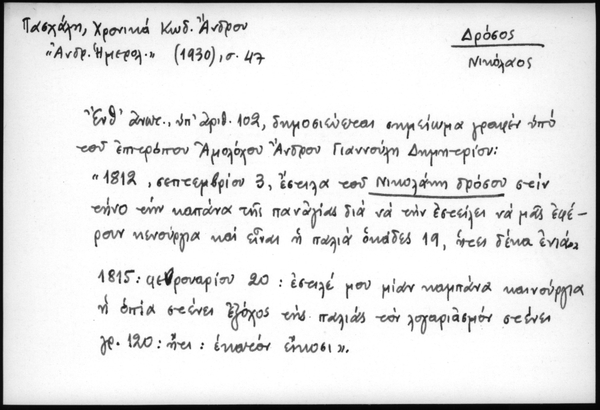 Πασχάλη, Χρονικά Κωδ. Ἄνδρου
"Ἀνδρ. Ἡμερολ." (1930), σ. 47
Δρόσος
Νικόλαος
Ἔνθ' ἀνωτ., ὑπ' ἀριθ. 102, δημοσιεύεται σημείωμα γραφέν ὑπό
τοῦ ἐπιτρόπου Ἀμολόχου Ἄνδρου Γιαννούλη Δημητρίου:
"1812, σεπτεμβρίου 3, ἔστιλα τοῦ Νικολάκη δρόσου στὶν
τῆνο τὴν καπάνα τῆς παναγίας διά νά τὴν ἐστείλει νά μᾶς ἐφέ-
ρουν κενούργια καί εἶναι ἡ παλιά ὀκάδες 19, ἤτει δέκα ἐνιά."
1815: φεβροναρίου 20: ἐστιλέ μου μίαν καμπάνα καινούργια
ἡ ὀπία στένει ἐξόχος τῆς παλιάς τὸν λογαριασμόν στένει
γρ. 120: ἤτι: ἐκατόν εἴκοσι».